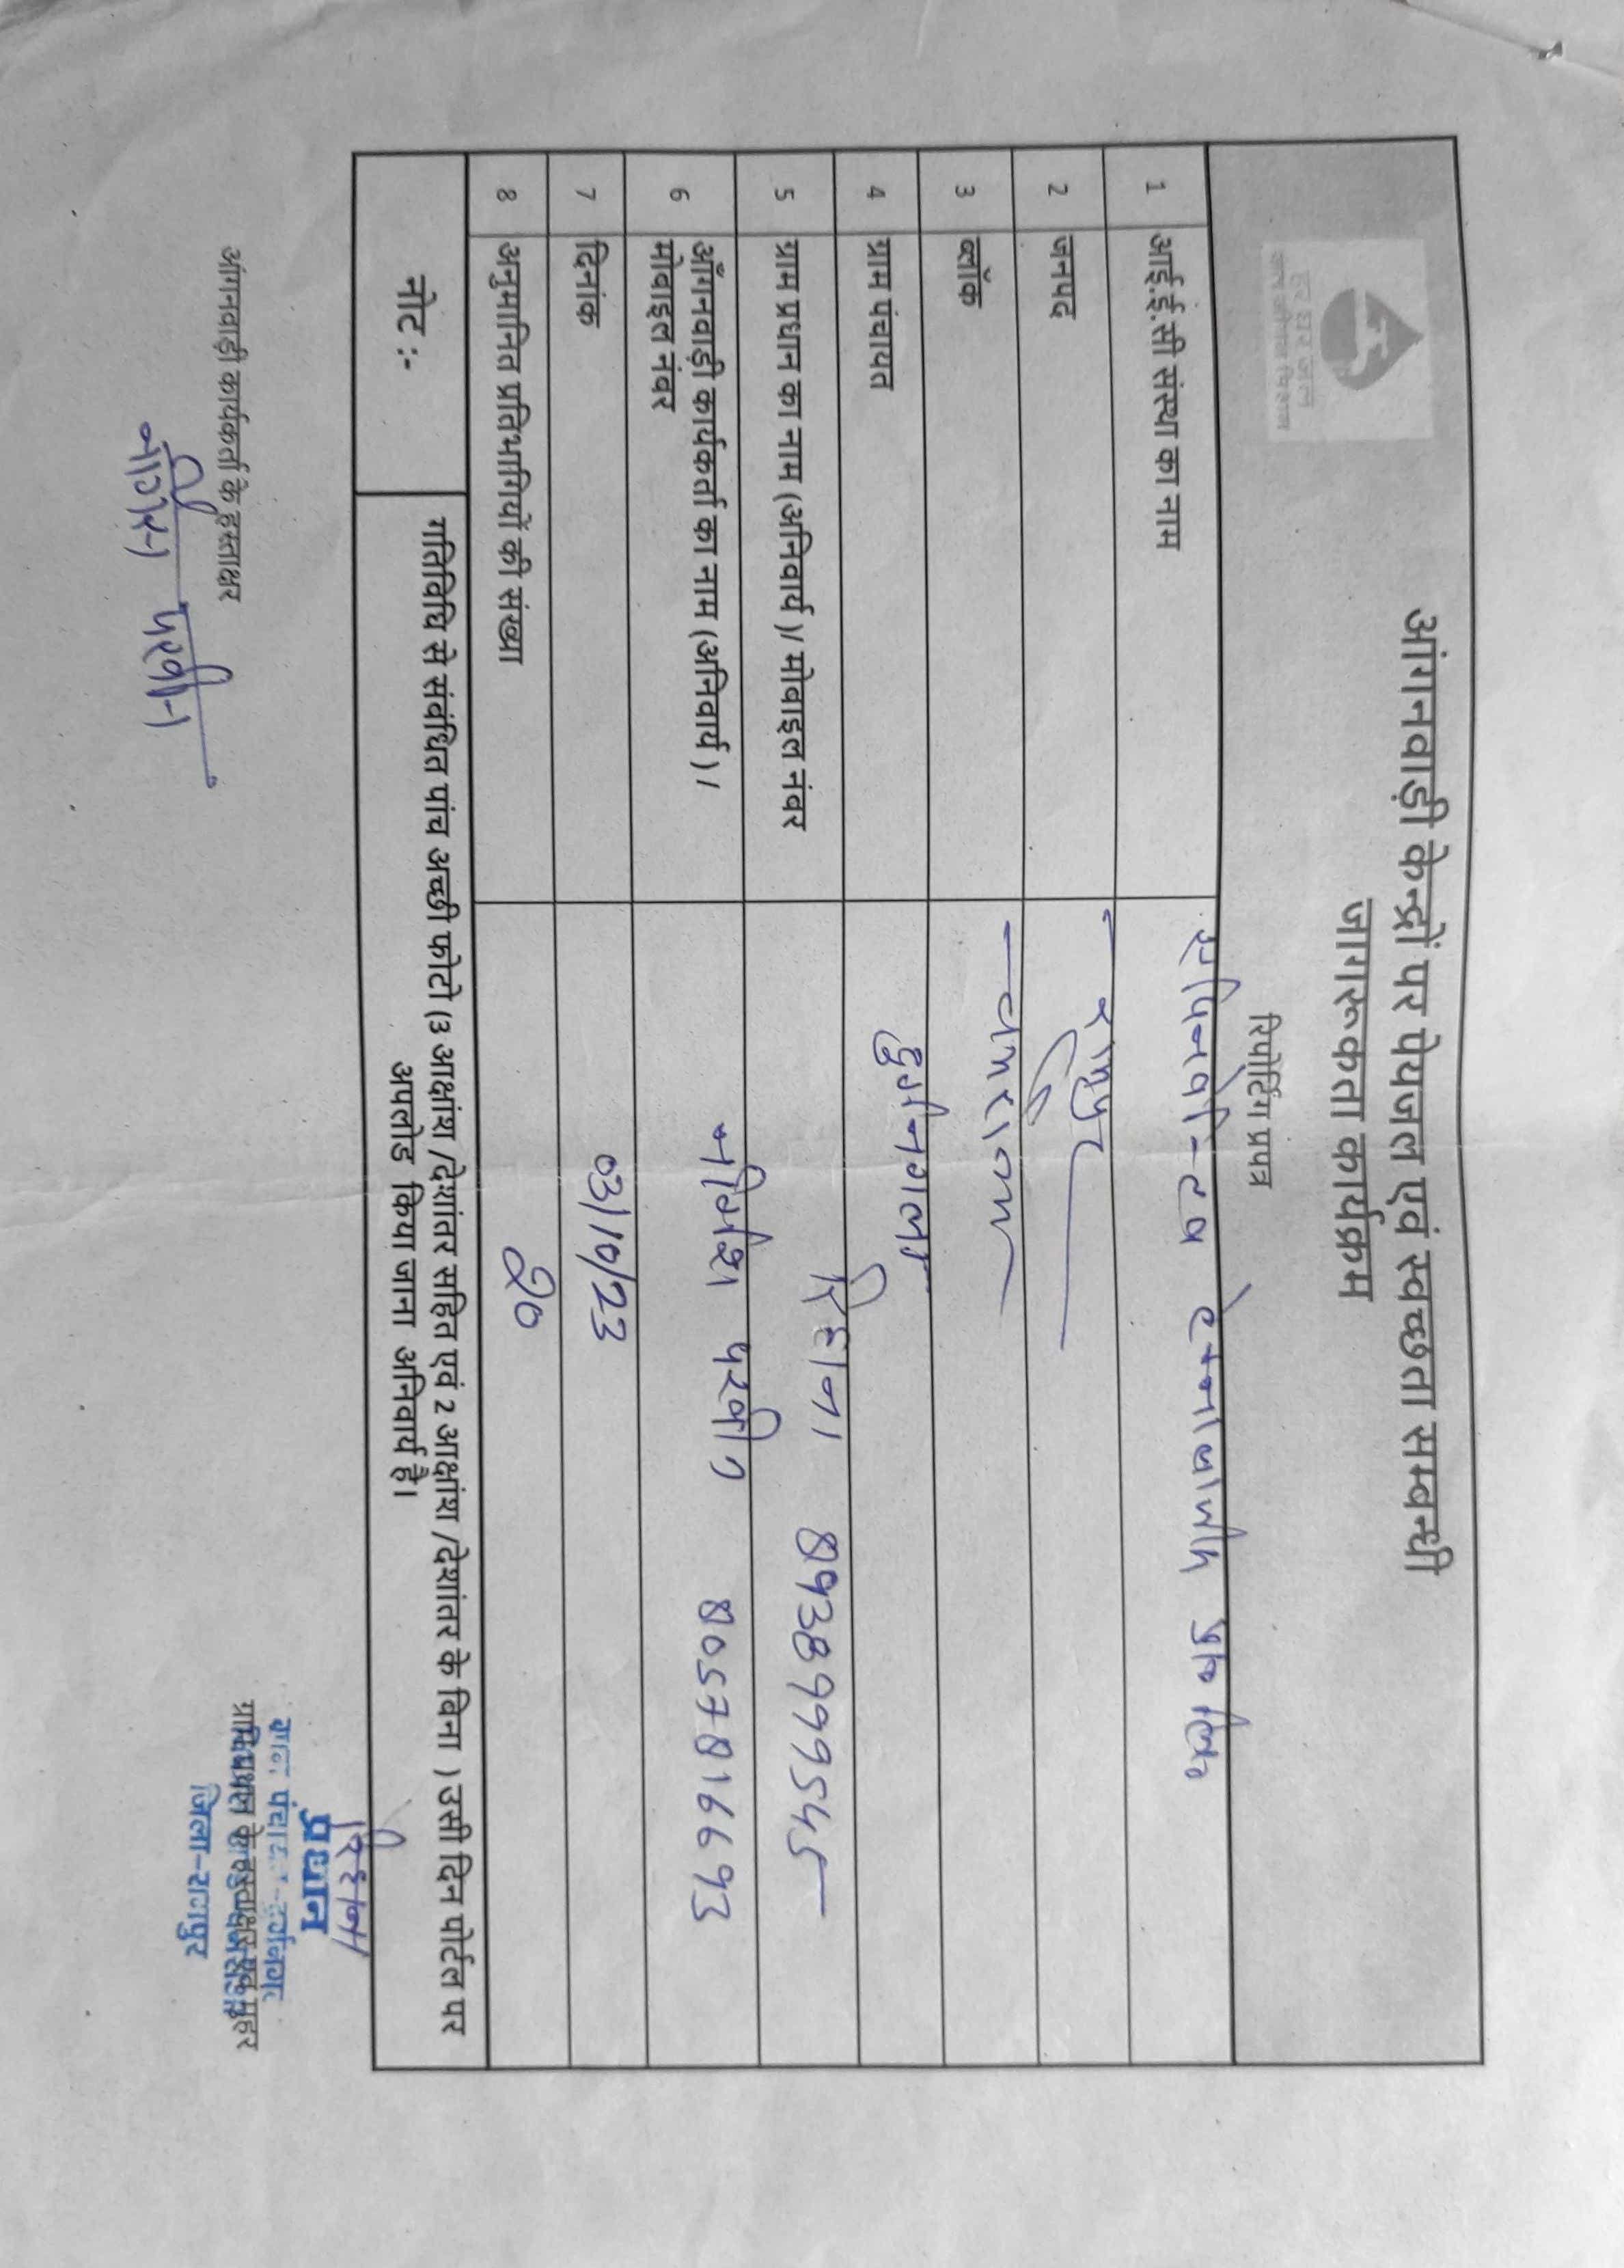 हर घर जल
जल जीवन मिशन
आंगनवाड़ी केन्द्रों पर पेयजल एवं स्वच्छता सम्बन्धी
जागरूकता कार्यक्रम
रिपोर्टिंग प्रपत्र
1 आई.ई.सी संस्था का नाम
2 जनपद रामपुर
3 ब्लॉक चमरौआ
4 ग्राम पंचायत दुर्गनगला
5 ग्राम प्रधान का नाम (अनिवार्य )/ मोबाइल नंबर रिहाना 8938999545
6 ऑगनवाड़ी कार्यकर्ता का नाम (अनिवार्य ) /
मोबाइल नंबर परवीन 8057816693
7 दिनांक 03/10/23
8 अनुमानित प्रतिभागियों की संख्या 20
नोट :- गतिविधि से संबंधित पांच अच्छी फोटो (3 आक्षांश /देशांतर सहित एवं 2 आक्षांश /देशांतर के बिना ) उसी दिन पोर्टल पर
अपलोड किया जाना अनिवार्य है।
रिहाना
प्रधान
आंगनवाड़ी कार्यकर्ता के हस्ताक्षर
परवीन
जिला-रामपुर